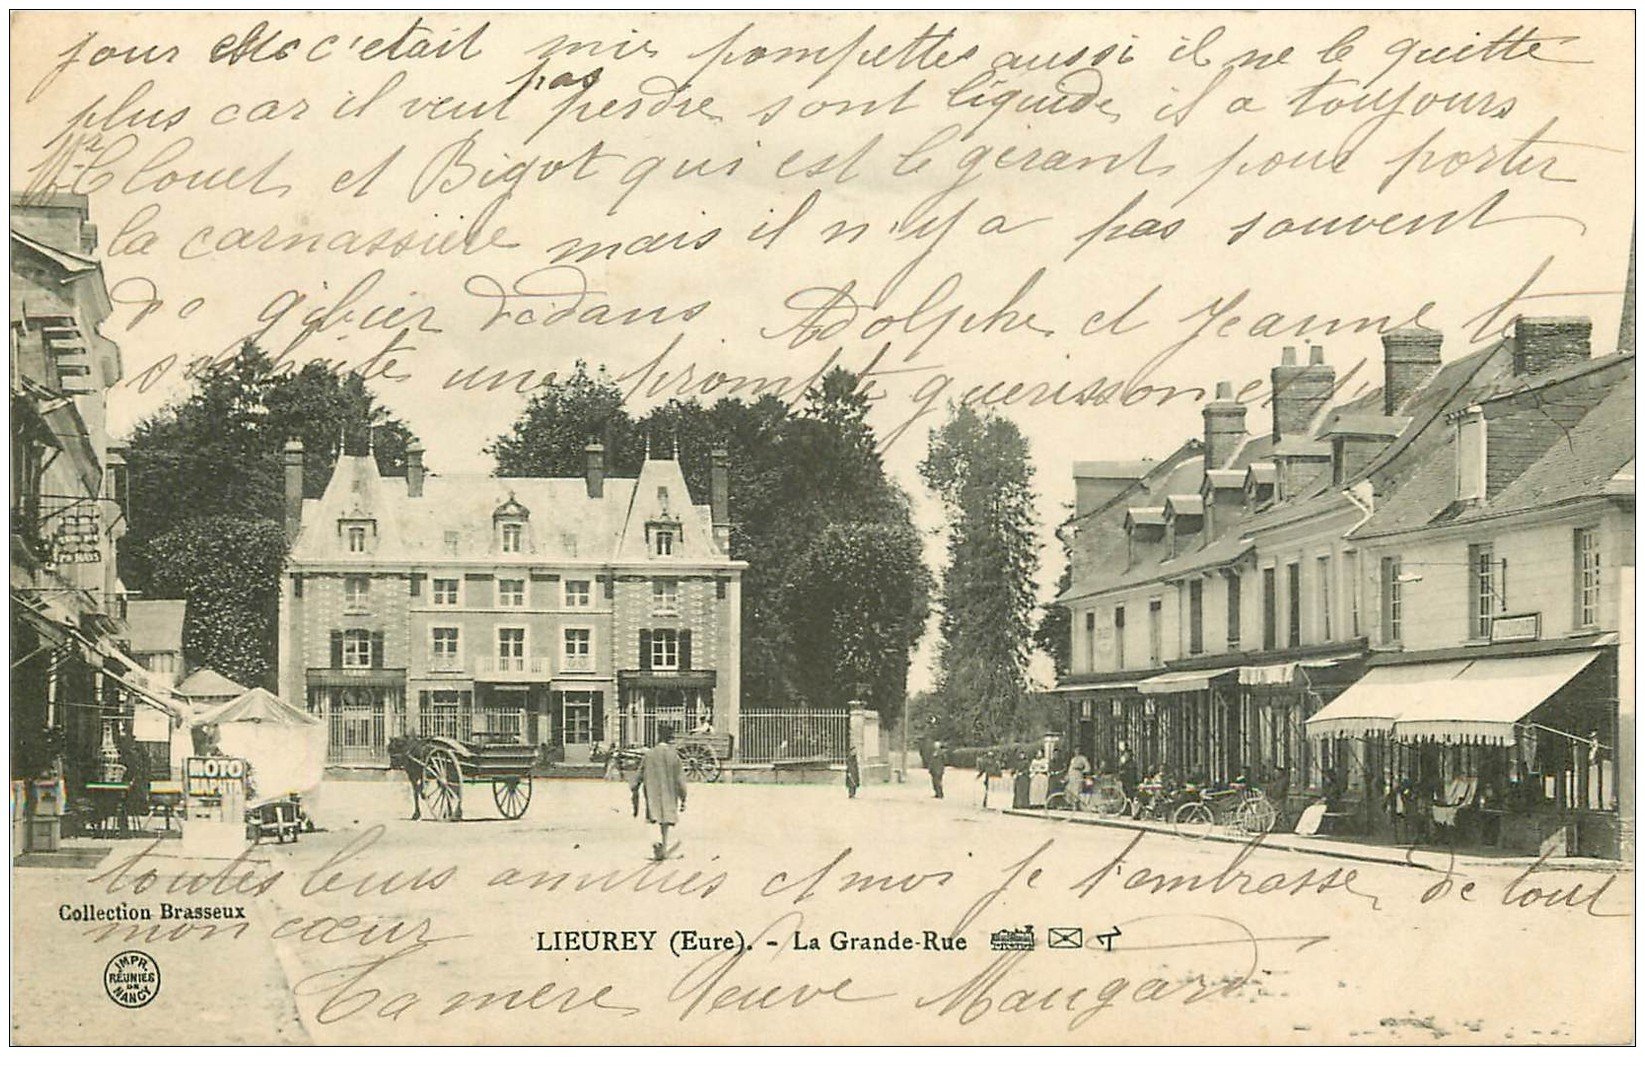 jour c'etait mie pompettes aussi il ne le quitte
plus car il veut pas perdre sont liquide il a toujours
Mr Clouet et Bigot qui est le gérant pour porter
la carnassière mais il n'y a pas souvent
de gibier dedans Adolphe et Jeanne te
souhaite une prompte guerisson
MOTO
NAPHTA
toutes leurs amitiés et moi je t'embrasse de tout
Collection Brasseux
mon cœur
LIEUREY (Eure). - La Grande-Rue
IMPR. RÉUNIES DE NANCY
Ta mere Veuve Maugard